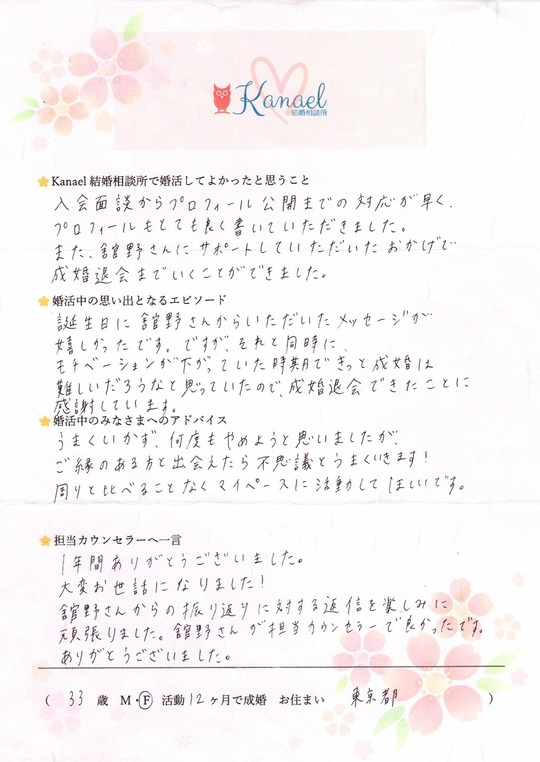 Kanael
結婚相談所
Kanael 結婚相談所で婚活してよかったと思うこと
入会面談からプロフィール公開までの対応が早く、
プロフィールもとても良く書いていただきました。
また、舘野さんにサポートしていただいたおかげで
成婚退会までいくことができました。
婚活中の思い出となるエピソード
誕生日に舘野さんからいただいたメッセージが
嬉しかったです。ですが、それと同時に、
モチベーションが下がっていた時期できっと成婚は
難しいだろうなと思っていたので、成婚退会できたことに
感謝しています。
婚活中のみなさまへのアドバイス
うまくいかず、何度もやめようと思いましたが、
ご縁のある方と出会えたら不思議とうまくいきます!
周りと比べることなくマイペースに活動してほしいです。
担当カウンセラーへ一言
1年間ありがとうございました。
大変お世話になりました!
舘野さんからの振り返りに対する返信を楽しみに
頑張りました。舘野さんが担当カウンセラーで良かったです。
ありがとうございました。
( 33 歳 M・F 活動12ヶ月で成婚 お住まい 東京都 )